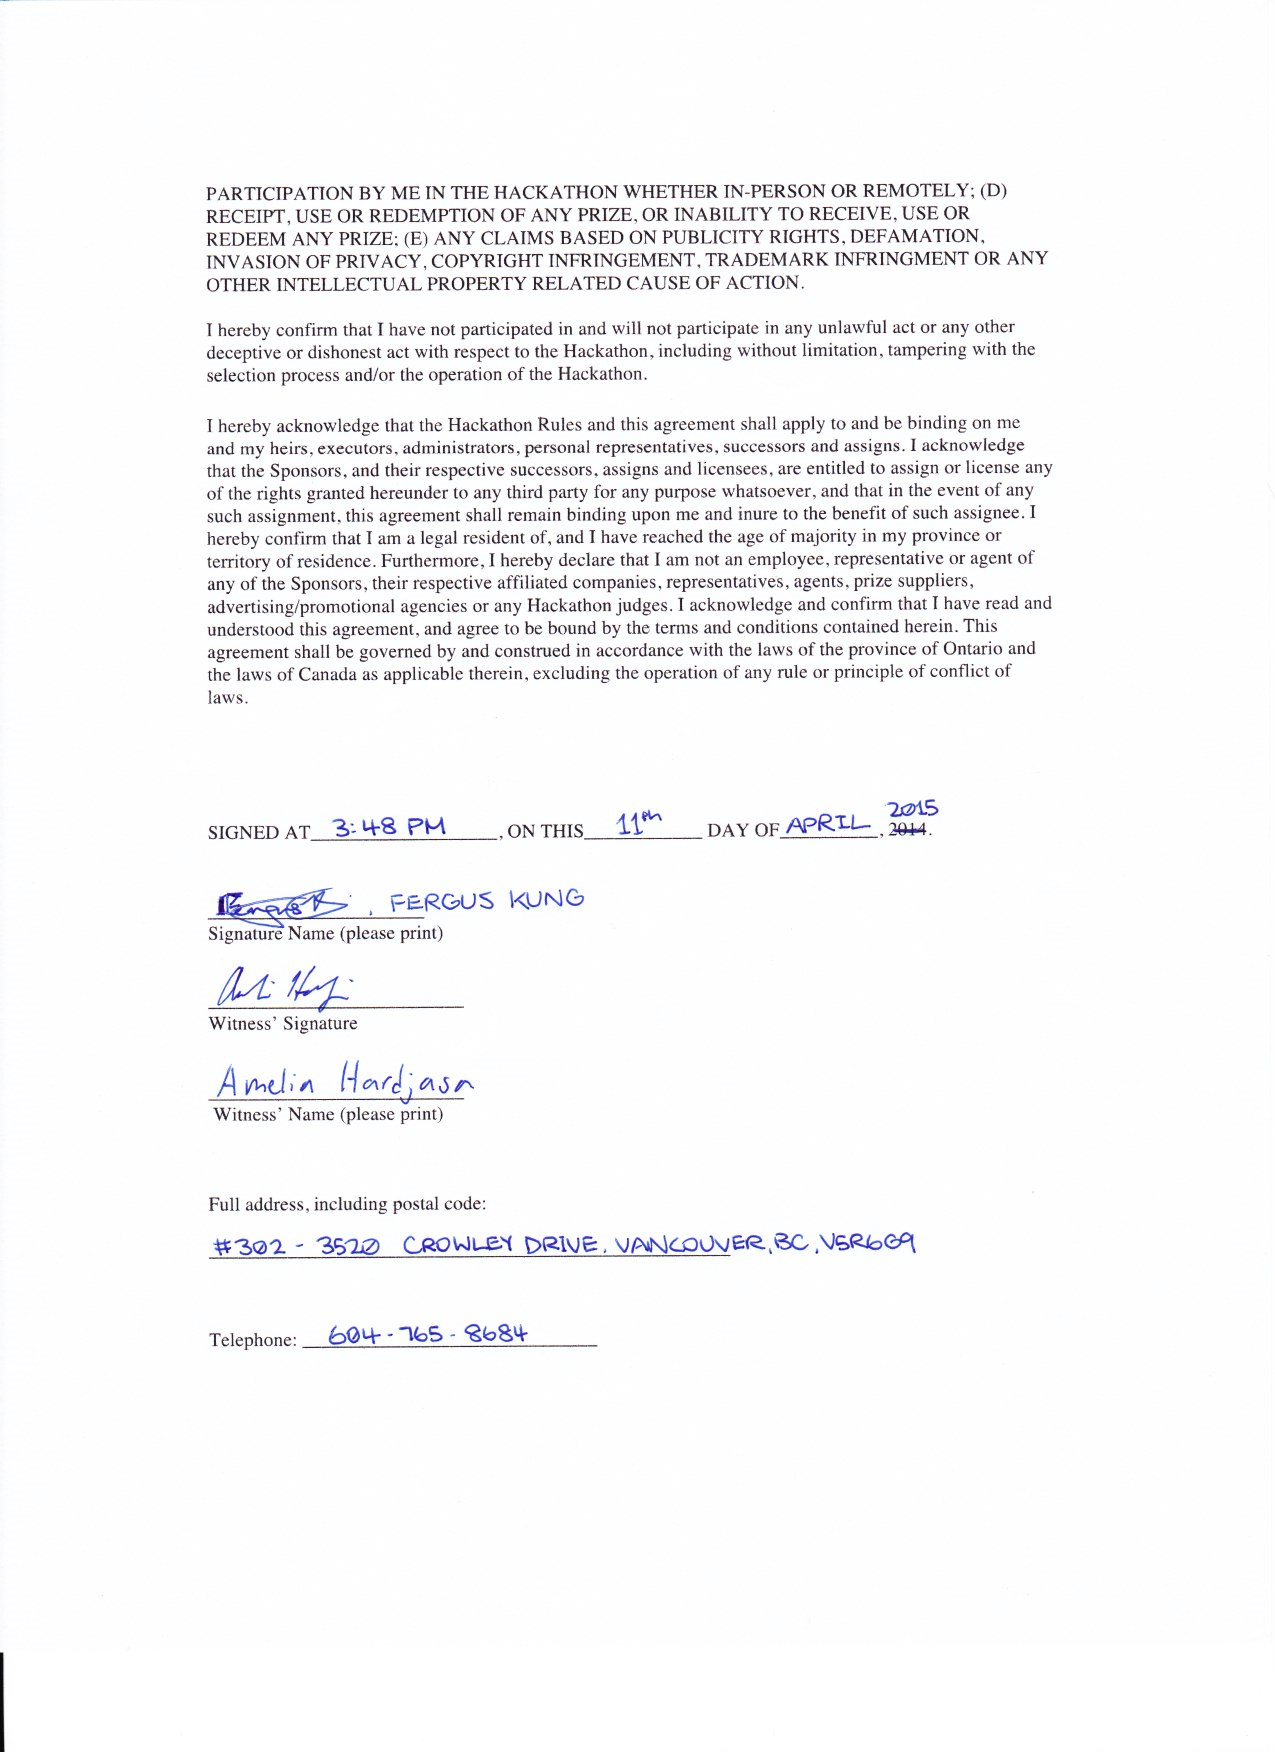 PARTICIPATION BY ME IN THE HACKATHON WHETHER IN-PERSON OR REMOTELY; (D)
RECEIPT, USE OR REDEMPTION OF ANY PRIZE, OR INABILITY TO RECEIVE, USE OR
REDEEM ANY PRIZE; (E) ANY CLAIMS BASED ON PUBLICITY RIGHTS, DEFAMATION,
INVASION OF PRIVACY, COPYRIGHT INFRINGEMENT, TRADEMARK INFRINGMENT OR ANY
OTHER INTELLECTUAL PROPERTY RELATED CAUSE OF ACTION.
I hereby confirm that I have not participated in and will not participate in any unlawful act or any other
deceptive or dishonest act with respect to the Hackathon, including without limitation, tampering with the
selection process and/or the operation of the Hackathon.
I hereby acknowledge that the Hackathon Rules and this agreement shall apply to and be binding on me
and my heirs, executors, administrators, personal representatives, successors and assigns. I acknowledge
that the Sponsors, and their respective successors, assigns and licensees, are entitled to assign or license any
of the rights granted hereunder to any third party for any purpose whatsoever, and that in the event of any
such assignment, this agreement shall remain binding upon me and inure to the benefit of such assignee. I
hereby confirm that I am a legal resident of, and I have reached the age of majority in my province or
territory of residence. Furthermore, I hereby declare that I am not an employee, representative or agent of
any of the Sponsors, their respective affiliated companies, representatives, agents, prize suppliers,
advertising/promotional agencies or any Hackathon judges. I acknowledge and confirm that I have read and
understood this agreement, and agree to be bound by the terms and conditions contained herein. This
agreement shall be governed by and construed in accordance with the laws of the province of Ontario and
the laws of Canada as applicable therein, excluding the operation of any rule or principle of conflict of
laws.
2015
SIGNED AT 3:48 PM, ON THIS 11th DAY OF APRIL, 2014.
, FERGUS KUNG
Signature Name (please print)
Witness' Signature
Amelia Hardjasa
Witness' Name (please print)
Full address, including postal code:
#302 - 3520 CROWLEY DRIVE, VANCOUVER, BC, V5R6G9
Telephone: 604-765-8684